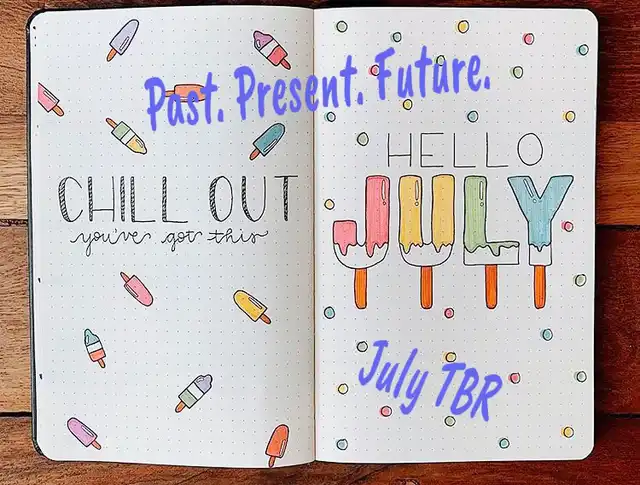 Past. Present. Future.
CHILL OUT
you've got this
HELLO
JULY
July TBR